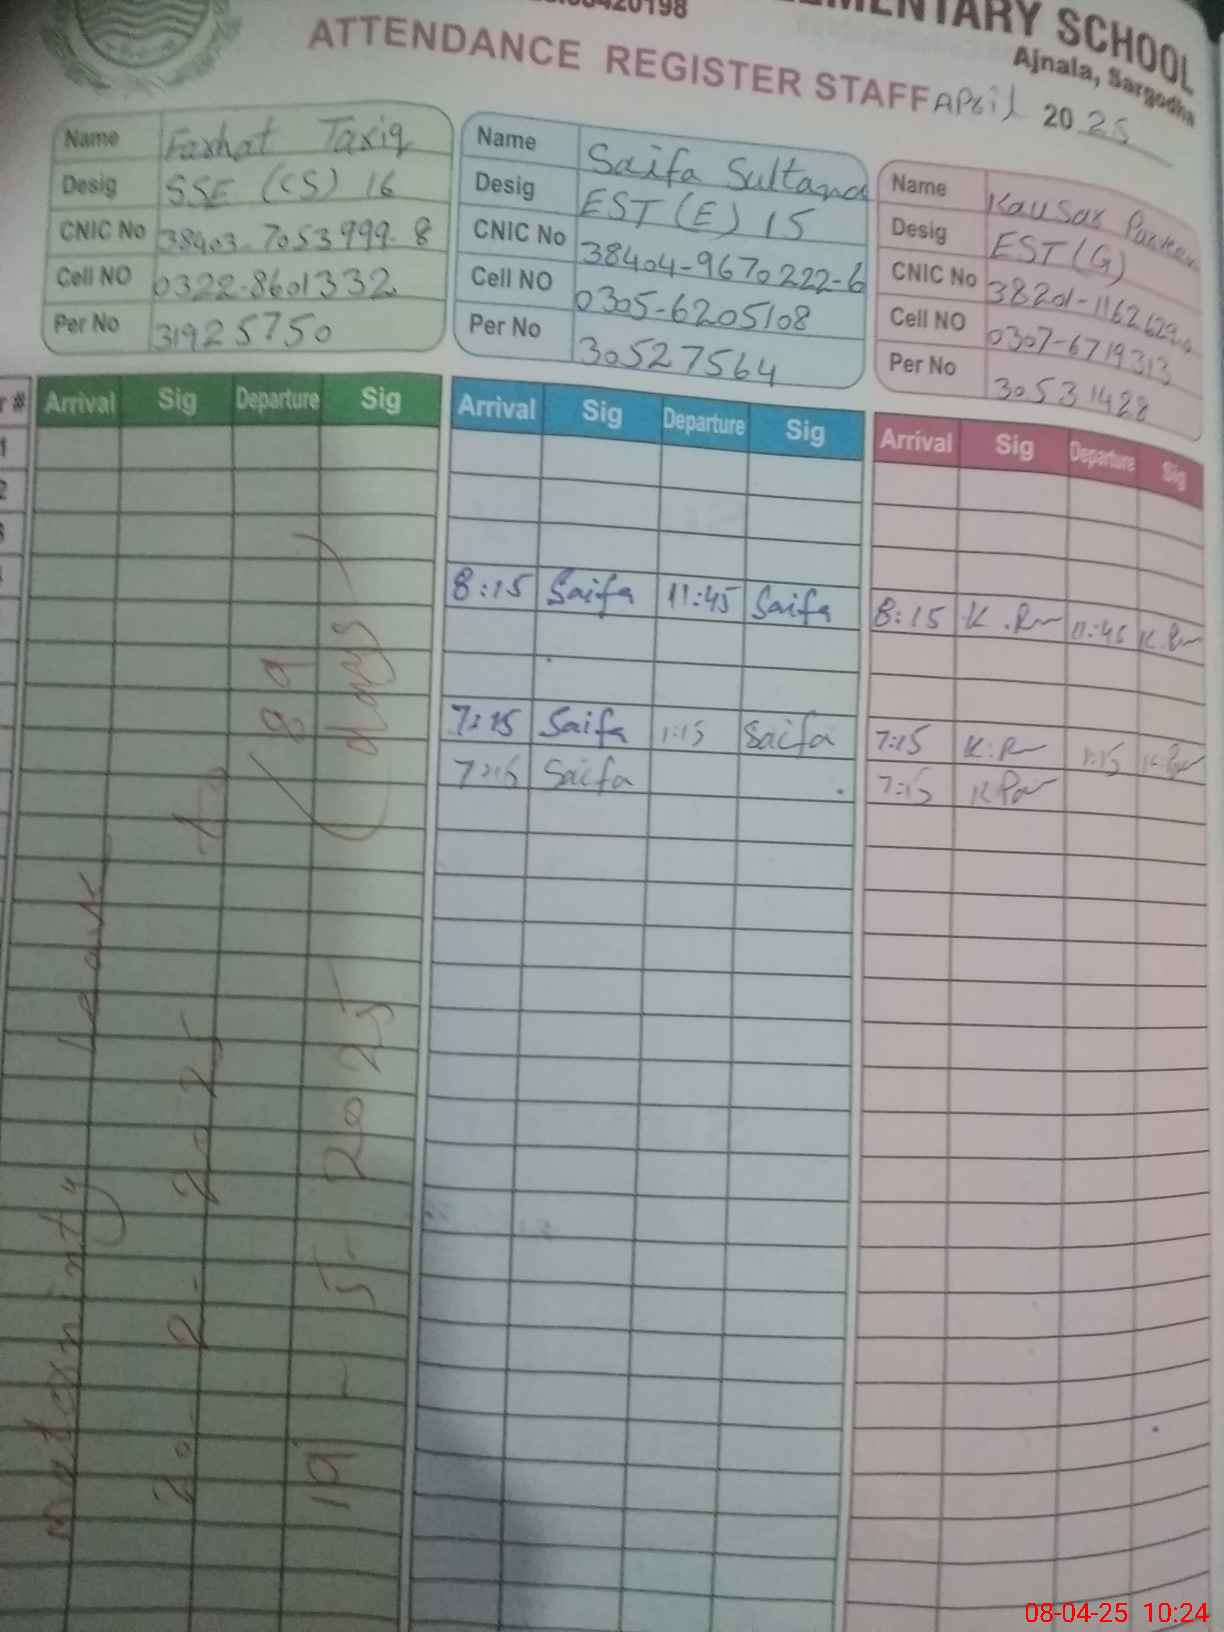 EMENTARY SCHOOL
Ajnala, Sargodha
ATTENDANCE REGISTER STAFF April 2025
Name Farhat Tariq
Desig SSE (CS) 16
CNIC No 38403-7053999-8
Cell NO 0322-8601332
Per No 31925750
Name Saifa Sultana
Desig EST (E) 15
CNIC No 38404-9670222-6
Cell NO 0305-6205108
Per No 30527564
Name Kausar Parveen
Desig EST (G)
CNIC No 38201-1162629-
Cell NO 0307-6719313
Per No 30531428
r # Arrival Sig Departure Sig Arrival Sig Departure Sig Arrival Sig Departure Sig
1
2
8:15 Saifa 11:45 Saifa 8:15 K.Pr 11:45 K.Pr
7:15 Saifa 1:15 Saifa 7:15 K.Pr 1:15 K.Pr
7:15 Saifa 7:15 K Par
maternity Leave
20-2-2025 to
19-5-2025
(89 days)
08-04-25 10:24